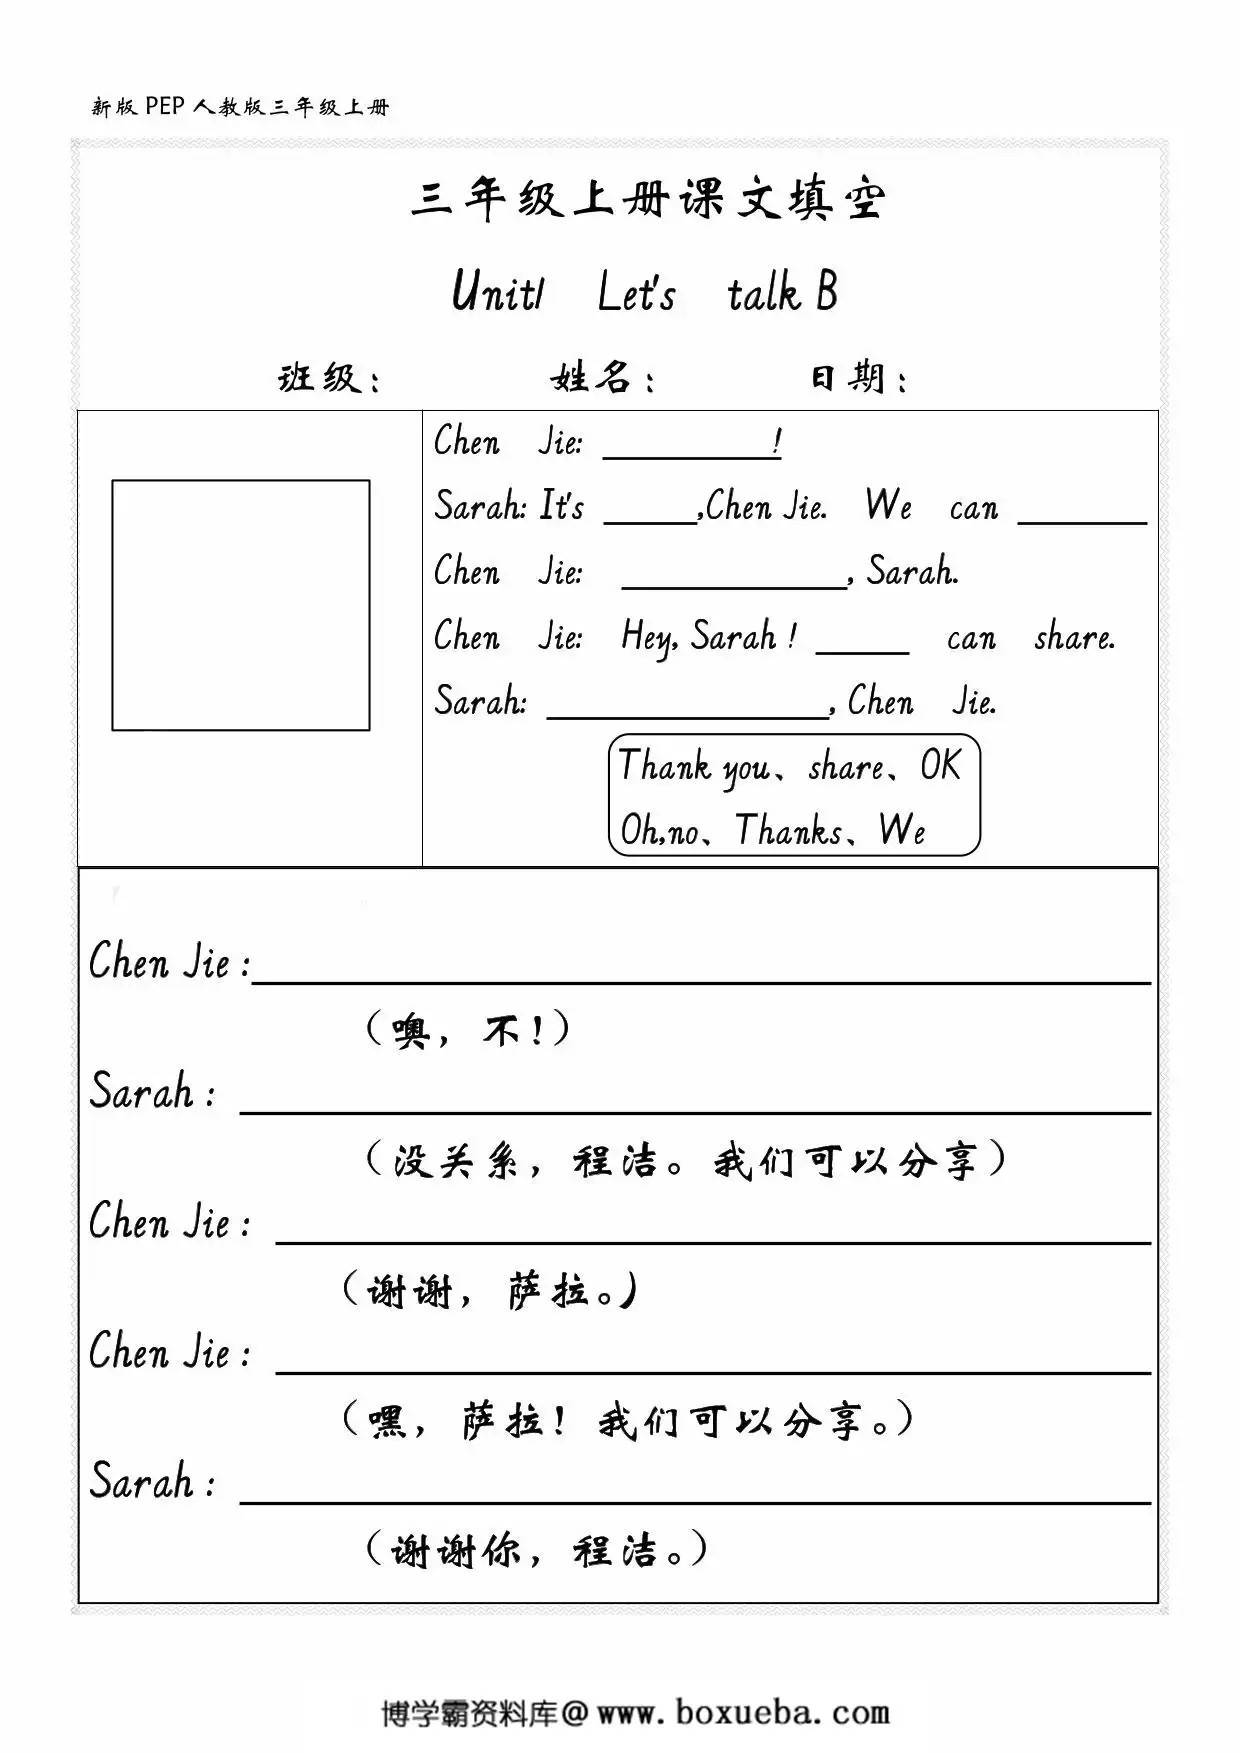 新版 PEP 人教版三年级上册
三年级上册课文填空
Unit1 Let's talk B
班级： 姓名： 日期：
Chen Jie: __________!
Sarah: It's _____,Chen Jie. We can _______
Chen Jie: ____________, Sarah.
Chen Jie: Hey, Sarah ! _____ can share.
Sarah: _______________, Chen Jie.
Thank you、share、OK
Oh,no、Thanks、We
Chen Jie :
（噢，不！）
Sarah :
（没关系，程洁。我们可以分享）
Chen Jie :
（谢谢，萨拉。）
Chen Jie :
（嘿，萨拉！我们可以分享。）
Sarah :
（谢谢你，程洁。）
博学霸资料库@ www.boxueba.com